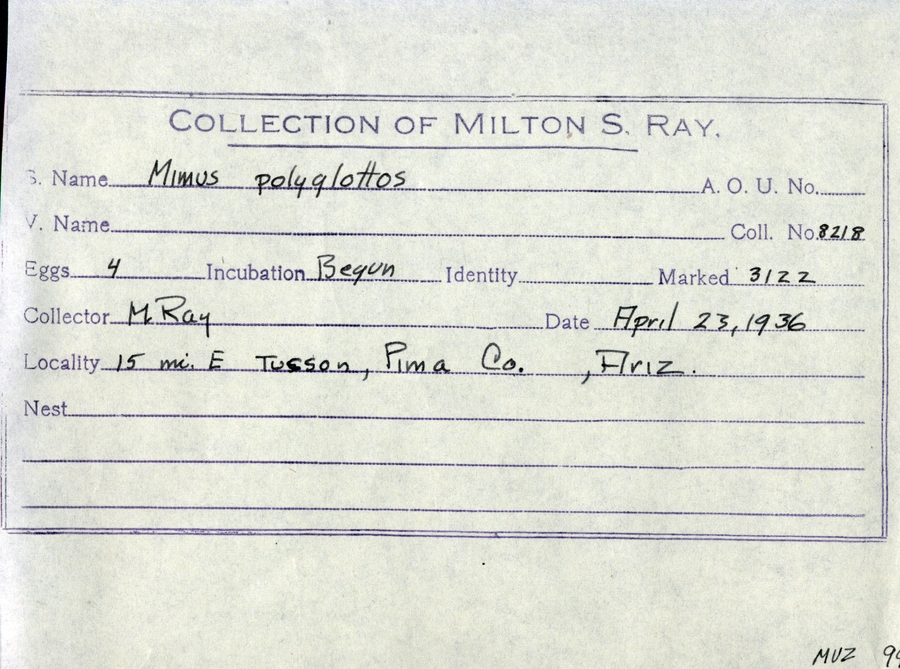 COLLECTION OF MILTON S. RAY.
S. Name Mimus polyglottos A. O. U. No.
V. Name Coll. No. 8218
Eggs 4 Incubation Begun Identity Marked 3122
Collector M. Ray Date April 23, 1936
Locality 15 mi. E Tusson, Pima Co. , Ariz.
Nest
MVZ 99